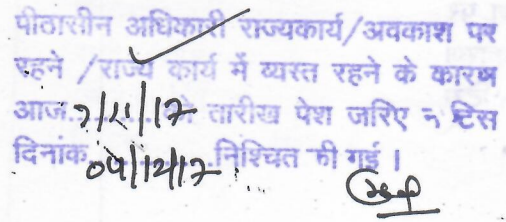 पीठासीन अधिकारी राज्यकार्य/अवकाश पर
रहने /राज्य कार्य में व्यस्त रहने के कारण
आज 7/11/17 को तारीख पेश जरिए नोटिस
दिनांक 04/12/17 निश्चित की गई।